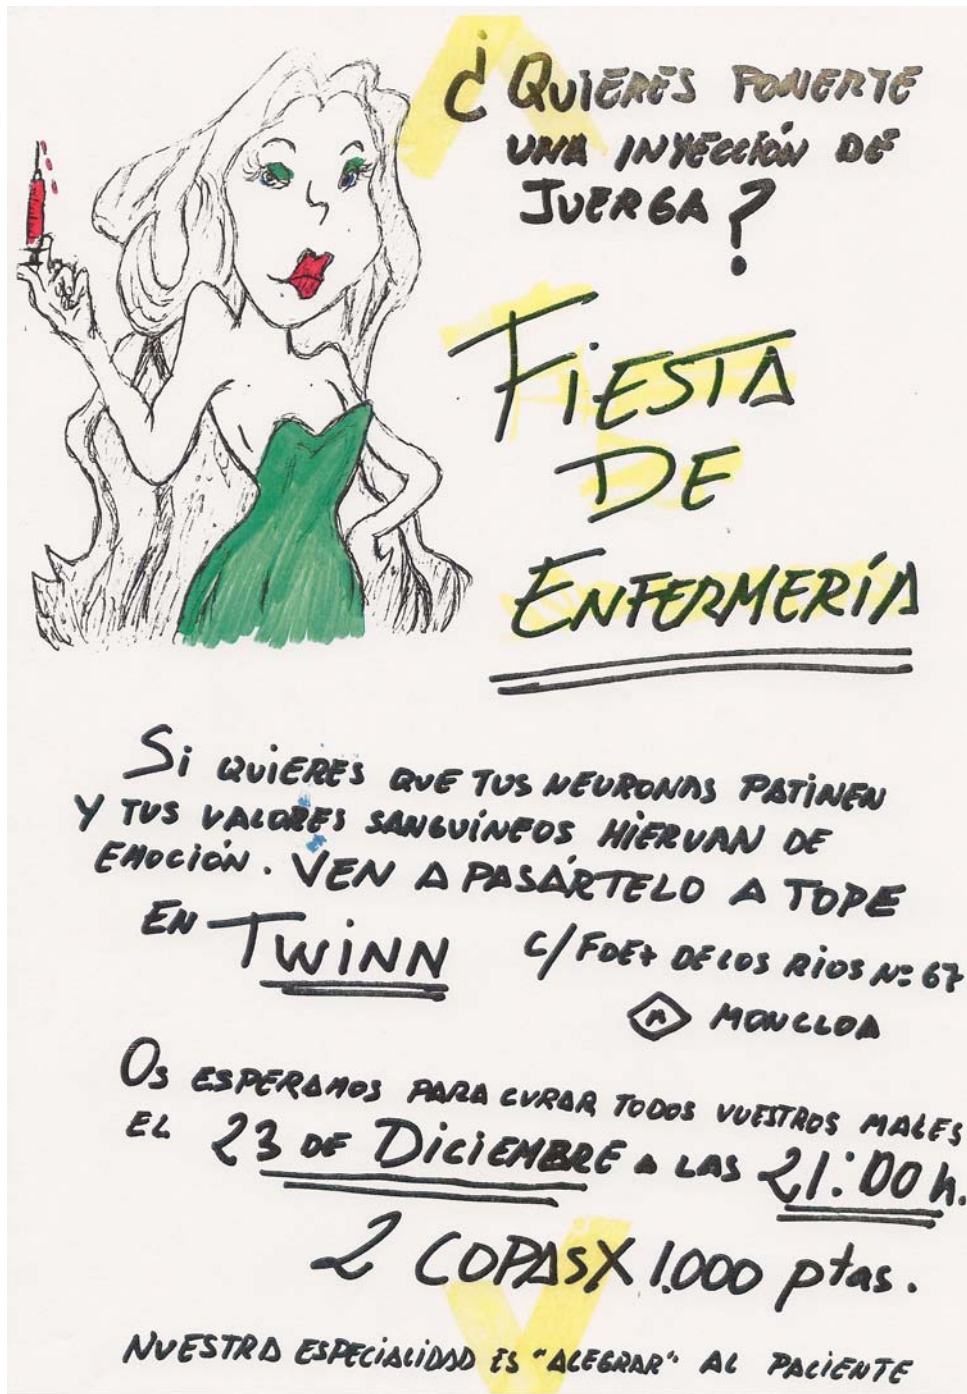 ¿QUIERES PONERTE
UNA INYECCIÓN DE
JUERGA?
FIESTA
DE
ENFERMERÍA
Si QUIERES QUE TUS NEURONAS PATINEN
Y TUS VALORES SANGUÍNEOS HIERVAN DE
EMOCIÓN. VEN A PASÁRTELO A TOPE
EN TWINN C/ FDEZ DE LOS RIOS Nº 67
M MONCLOA
OS ESPERAMOS PARA CURAR TODOS VUESTROS MALES
EL 23 DE DICIEMBRE A LAS 21:00 h.
2 COPAS X 1.000 ptas.
NUESTRA ESPECIALIDAD ES "ALEGRAR" AL PACIENTE